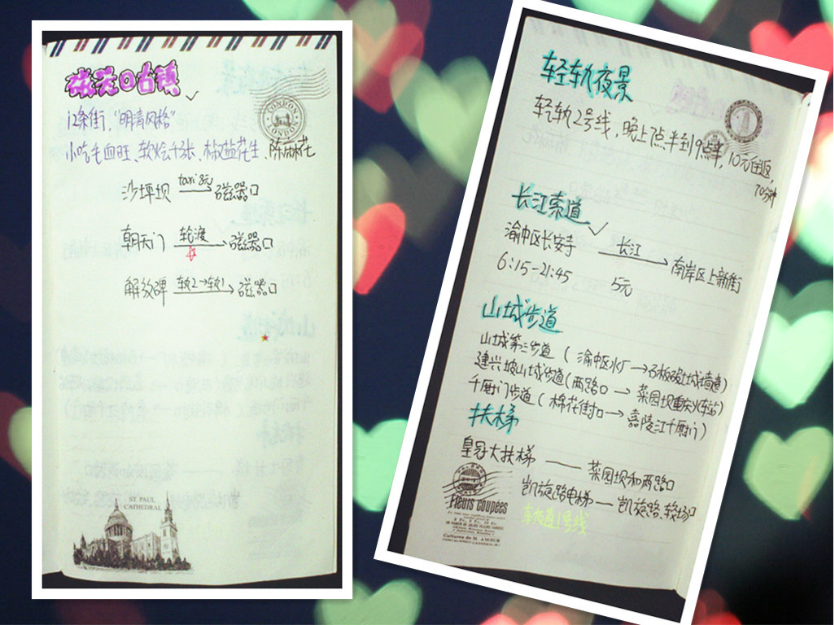 磁器口古镇
12条街,"明清风格"
小吃毛血旺、软烩千张、椒盐花生、陈麻花
沙坪坝 taxi 8元 磁器口
朝天门 轮渡 磁器口
解放碑 轻2→轻1 磁器口
ST. PAUL
CATHEDRAL
LONDON
轻轨夜景
轻轨2号线,晚上7点半到9点半,10元往返,
70分钟
长江索道
渝中区长安寺 长江 南岸区上新街
6:15-21:45 5元
山城步道
山城第三步道(渝中区水厂→石板坡
建兴坡山城步道(两路口→菜园坝重庆火车站)
千厮门步道(棉花街口→嘉陵江千厮门)
扶梯
皇冠大扶梯——菜园坝和两路口
凯旋路电梯—凯旋路、较场口
轨道1号线
Fleurs coupées